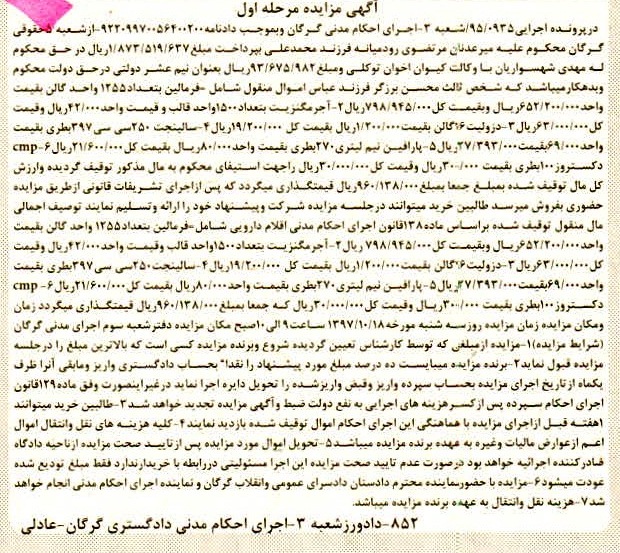 آگهی مزایده مرحله اول
درپرونده اجرایی۹۵/۰۹۳۵/شعبه ۳-اجرای احکام مدنی گرگان وبموجب دادنامه۹۲۲۰۹۹۷۰۰۵۶۴۰۰۲۰۰-ازشعبه حقوقی
گرگان محکوم علیه میرعدنان مرتضوی رودمیانه فرزند محمدعلی بپرداخت مبلغ۱/۸۷۳/۵۱۹/۶۳۷ریال در حق محکوم
له مهدی شهسواریان بـا وکالت کیوان اخوان توکلی ومبلغ۹۳/۶۷۵/۹۸۲ریـال بعنوان نیم عشر دولتی درحق دولت محکوم
وبدهکارمیباشد کـه شخص ثالث محسن برزگر فرزند عباس اموال منقول شامل =فرمالین بتعداد۱۲۵۵ واحـد گالن بقیمت
واحد۶۵۲/۲۰۰ریال وبقیمت کل۷۹۸/۹۴۵/۰۰۰ریال۲-آجرمگنزیت بتعداد۱۵۰۰واحد قالب و قیمت واحد۴۲/۰۰۰ریال وقیمت
کل۶۳/۰۰۰/۰۰۰ریال۳-دزولیت۱۶گالن بقیمت۱/۲۰۰/۰۰۰ریال بقیمت کل ۱۹/۲۰۰/۰۰۰ریال۴-سالینجت۲۵۰سی سی۳۹۷بطری بقیمت
واحد۶۹/۰۰۰بقیمت۲۷/۳۹۳/۰۰۰ریال۵-پارافین نیم لیتری۲۷۰بطری بقیمت واحد۸۰/۰۰۰ریـال بقیمت کل۲۱/۶۰۰/۰۰۰ریال۶-cmp
دکستروز۱۰۰بطری بقیمت ۳۰۰/۰۰۰ریال وقیمت کل۳۰/۰۰۰/۰۰۰ریال راجهت استیفای محکوم به مال مذکور توقیف گردیده وارزش
کل مال توقیف شده بمبلغ جمعا بمبلغ۹۶۰/۱۳۸/۰۰۰ریال قیمتگذاری میگردد که پس ازاجرای تشریفات قانونی ازطریق مزایده
حضوری بفروش میرسد طالبین خرید میتوانند درجلسه مزایده شرکت وپیشنهاد خود را ارائه وتسلیم نمایند توصیف اجمالی
مال منقول توقیف شده براساس ماده۱۳۸قانون اجرای احکام مدنی اقلام دارویی شامل=فرمالین بتعداد۱۲۵۵ واحد گالن بقیمت
واحد۶۵۲/۲۰۰ریال وبقیمت کل ۷۹۸/۹۴۵/۰۰۰ریال۲-آجرمگنزیت بتعداد۱۵۰۰واحد قالب وقیمت واحد۴۲/۰۰۰ریال وقیمت
کل۶۳/۰۰۰/۰۰۰ریال۳-دزولیت۱۶گالن بقیمت۱/۲۰۰/۰۰۰ریال بقیمت کل ۱۹/۲۰۰/۰۰۰ریال۴-سالینجت۲۵۰سی سی۳۹۷بطری بقیمت
واحد۶۹/۰۰۰بقیمت۲۷/۳۹۳/۰۰۰ریال۵-پارافین نیم لیتری۲۷۰بطری بقیمت واحد۸۰/۰۰۰ریال بقیمت کل۲۱/۶۰۰/۰۰۰ریال۶-cmp
دکستروز۱۰۰بطری بقیمت ۳۰۰/۰۰۰ریال وقیمت کل۳۰/۰۰۰/۰۰۰ریال که جمعا بمبلغ۹۶۰/۱۳۸/۰۰۰ریال قیمتگذاری میگردد زمان
ومکان مزایده زمان مزایده روزسه شنبه مورخه ۱۳۹۷/۱۰/۱۸ ساعت۹ الی۱۰صبح مکان مزایده دفترشعبه سوم اجرای مدنی گرگان
(شرایط مزایده)۱-مزایده ازمبلغی که توسط کارشناس تعیین گردیده شروع وبرنده مزایده کسی است که بالاترین مبلغ را درجلسه
مزایده قبول نماید۲-برنده مزایده میبایست ده درصد مبلغ مورد پیشنهاد را نقدا" بحساب دادگستری واریز ومابقی آنرا ظرف
یکماه ازتاریخ اجرای مزایده بحساب سپرده واریز وقبض واریزشده را تحویل دایره اجرا نماید درغیراینصورت وفق ماده۱۲۹قانون
اجرای احکام سپرده پس ازکسرهزینه های اجرایی به نفع دولت ضبط وآگهی مزایده تجدید خواهد شد۳-طالبین خرید میتوانند
۱هفته قبل ازاجرای مزایده با هماهنگی این اجرای احکام اموال توقیف شده بازدید نمایند۴-کلیه هزینه های نقل وانتقال اموال
اعم ازعوارض مالیات وغیره به عهده برنده مزایده میباشد۵-تحویل اموال مورد مزایده پس ازتایید صحت مزایده ازناحیه دادگاه
صادرکننده اجرائیه خواهد بود درصورت عدم تایید صحت مزایده این اجرا مسئولیتی دررابطه با خریدارندارد فقط مبلغ تودیع شده
عودت میشود۶-مزایده با حضورنماینده محترم دادستان دادسرای عمومی وانقلاب گرگان و نماینده اجرای احکام مدنی انجام خواهد
شد۷-هزینه نقل وانتقال به عهده برنده مزایده میباشد.
۸۵۲-دادورزشعبه ۳-اجرای احکام مدنی دادگستری گرگان-عادلی